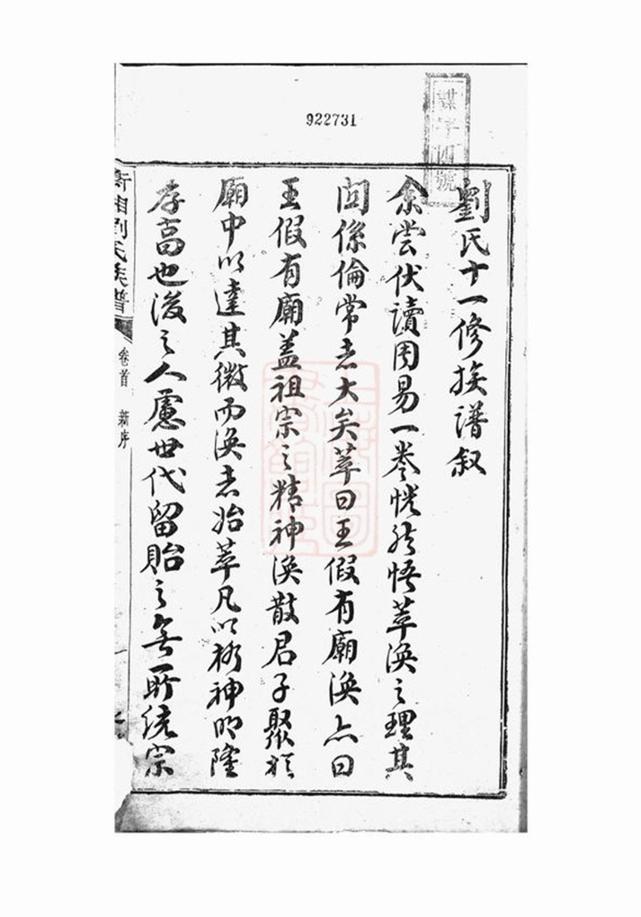 922731
劉氏十一修族譜叙
余嘗伏讀周易一卷恍然悟萃渙之理其
関係倫常者大矣萃曰王假有廟渙亦曰
王假有廟蓋祖宗之精神渙散君子聚於
廟中以達其微而渙者始萃凡以格神明隆
孝高也後之人慮世代留貽之無所統宗
劉氏族譜
卷首
新序